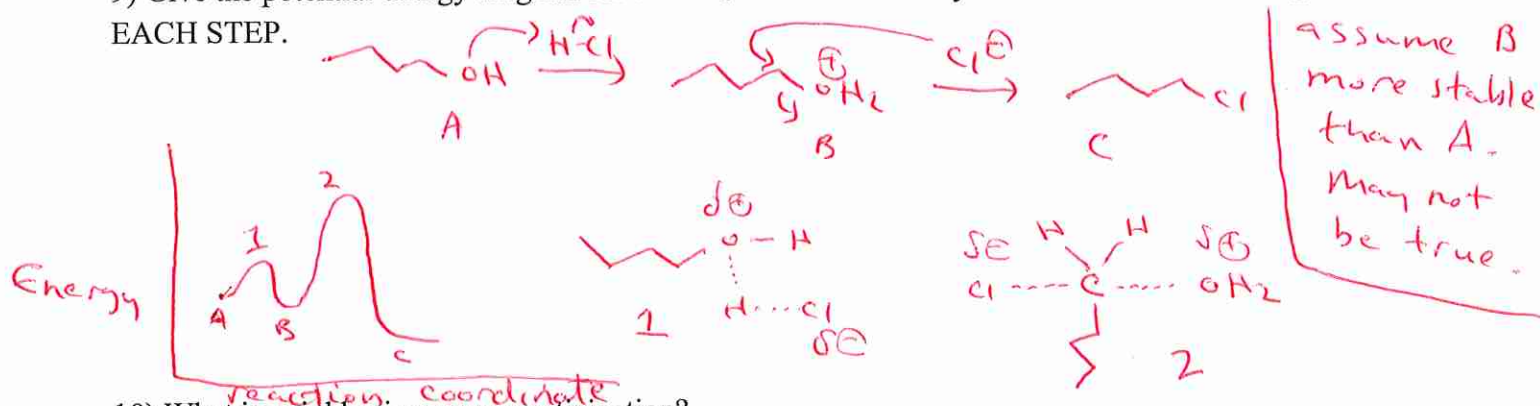 EACH STEP.
OH
H-Cl
A
⊕
OH₂
B
Cl⊖
Cl
C
assume B
more stable
than A.
May not
be true.
Energy
A
1
B
2
C
reaction coordinate
δ⊕
O - H
H....Cl
δ⊖
1
δ⊖
H
H
δ⊕
Cl ---- C ---- OH₂
2